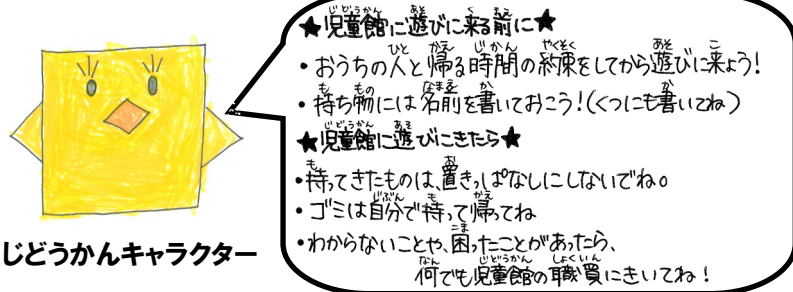 ★児童館に遊びに来る前に★
・おうちの人と帰る時間の約束をしてから遊びに来よう!
・持ち物には名前を書いておこう!(くつにも書いてね)
★児童館に遊びにきたら★
・持ってきたものは、置きっぱなしにしないでね。
・ゴミは自分で持って帰ってね
・わからないことや、困ったことがあったら、
何でも児童館の職員にきいてね!
じどうかんキャラクター